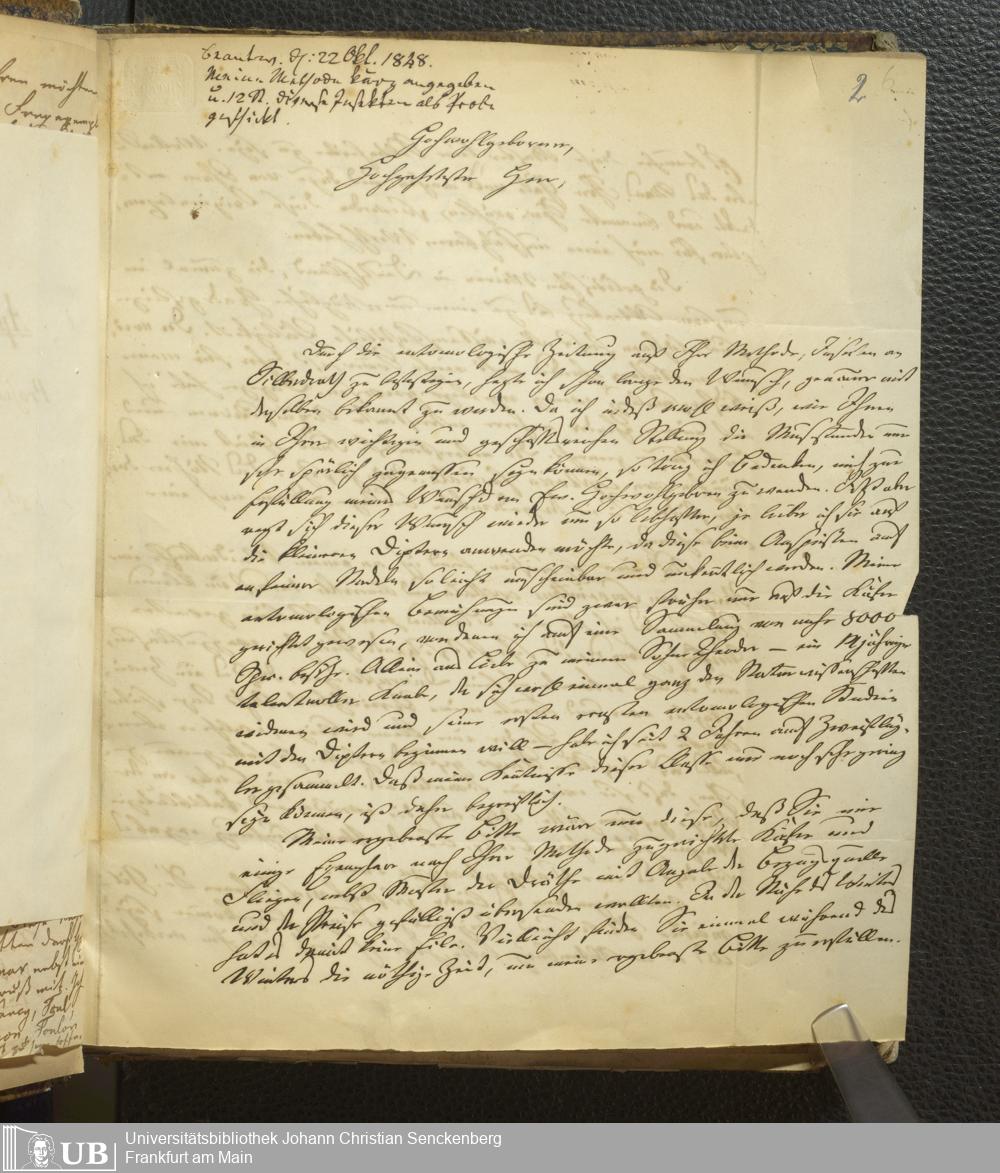 Beantw. d: 22 Okt. 1848.
Meine Methode kurz angegeben
u. 12 St. diverse Insekten als Probe
geschickt.
2
6
Hochwohlgeborner,
Hochgeehrtester Herr,
Durch die entomologische Zeitung auf Ihre Methode, Insekten an
Silberdrath zu befestigen, hegte ich schon lange den Wunsch, genauer mit
derselben bekannt zu werden. Da ich indeß wohl weiß, wie Ihnen
in Ihrer wichtigen und geschäftsreichen Stellung die Mußestunden nur
sehr spärlich zugemessen seyn können, so trug ich Bedenken, mich zur
Erfüllung meines Wunsches an Ew. Hochwohlgeboren zu wenden. Jetzt aber
regt sich dieser Wunsch wieder um so lebhafter, je lieber ich sie auf
die kleineren Diptern anwenden möchte, da diese beim Aufspießen auf
Nadeln so leicht unscheinbar und unkenntlich werden. Meine
entomologischen Bemühungen sind zwar früher nur auf die Käfer
gerichtet gewesen, von denen ich auch eine Sammlung von mehr 8000
Spec. besitze. Allein aus Liebe zu meinem Sohne Theodor – ein 14jähriger
talentvoller Knabe, der sich wohl einmal ganz den Naturwissenschaften
widmen wird und seine ersten ernsten entomologischen Studien
mit den Diptern beginnen will – habe ich seit 2 Jahren auch Zweiflüg-
ler gesammelt. Daß meine Kentnisse dieser Classe nur noch sehr gering
seyn können, ist daher begreiflich.
Meine ergebenste Bitte wäre nun diese, daß Sie mir
einige Exemplare nach Ihrer Methode zugerichtete Käfer und
Fliegen, nebst Muster der Dräthe mit Angabe der Bezugsquelle
und der Preise gefälligst übersenden wollten. In der Nähe des Winters
hat es damit keine Eile. Vielleicht finden Sie einmal während des
Winters die nöthige Zeit, um meine ergebenste Bitte zu erfüllen.
UB
Universitätsbibliothek Johann Christian Senckenberg
Frankfurt am Main